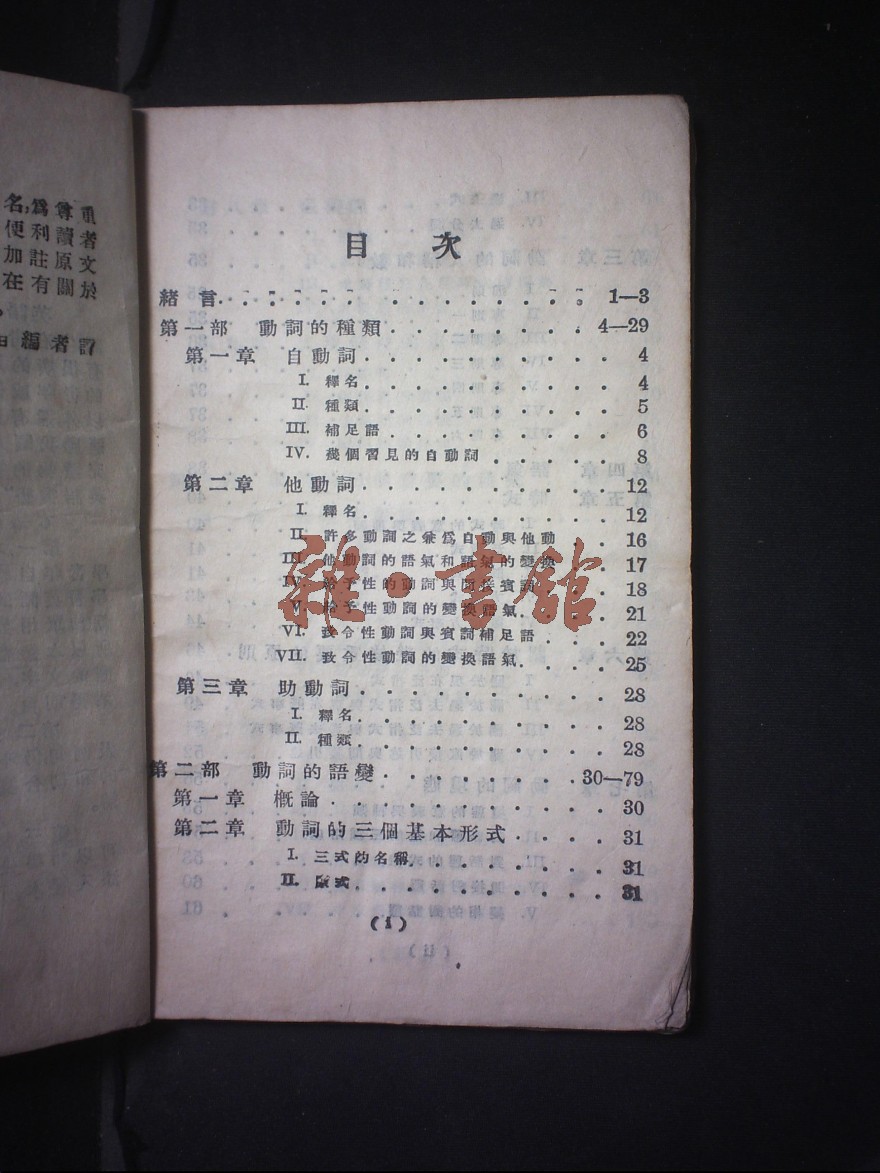 名,爲尊重
便利讀者
加註原文
在有關於
編者謂
目 次
緒言 1—3
第一部 動詞的種類 4—29
第一章 自動詞 4
I. 釋名 4
II. 種類 5
III. 補足語 6
IV. 幾個習見的自動詞 8
第二章 他動詞 12
I. 釋名 12
II. 許多動詞之兼爲自動與他動 16
III. 他動詞的語氣和語氣的變換 17
IV. 給予性的動詞與間接賓詞 18
V. 給予性動詞的變換語氣 21
VI. 致令性動詞與賓詞補足語 22
VII. 致令性動詞的變換語氣 25
第三章 助動詞 28
I. 釋名 28
II. 種類 28
第二部 動詞的語變 30—79
第一章 概論 30
第二章 動詞的三個基本形式 31
I. 三式的名稱 31
II. 原式 31
(i)
雜·書館